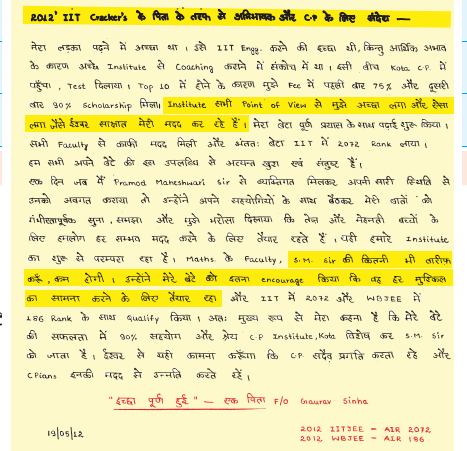 2012' IIT Cracker's के पिता के तरफ से अभिभावक और C.P के लिए संदेश —
मेरा लड़का पढ़ने में अच्छा था। उसे IIT Engg. करने की इच्छा थी, किन्तु आर्थिक अभाव
के कारण अच्छे Institute से Coaching कराने में संकोच में था। इसी बीच Kota C.P. में
पहुँचा, Test दिलाया। Top 10 में होने के कारण मुझे Fee में पहली बार 75% और दूसरी
बार 90% Scholarship मिला, Institute सभी Point of View से मुझे अच्छा लगा और ऐसा
लगा जैसे ईश्वर साक्षात मेरी मदद कर रहे हैं। मेरा बेटा पूर्ण प्रयास के साथ पढ़ाई शुरू किया।
सभी Faculty से काफी मदद मिली और अंततः बेटा IIT में 2072 Rank लाया।
हम सभी अपने बेटे की इस उपलब्धि से अत्यन्त खुश एवं संतुष्ट हैं।
एक दिन जब मैं Pramod Maheshwari Sir से व्यक्तिगत मिलकर अपनी सारी स्थिति से
उनको अवगत कराया तो उन्होंने अपने सहयोगियों के साथ बैठकर मेरी बातों को
गंभीरतापूर्वक सुना, समझा और मुझे भरोसा दिलाया कि तेज और मेहनती बच्चों के
लिए हमलोग हर सम्भव मदद करने के लिए तैयार रहते हैं। यही हमारे Institute
का शुरू से परम्परा रहा है। Maths. के Faculty, S.M. Sir की कितनी भी तारीफ
करूँ, कम होगी। उन्होंने मेरे बेटे को इतना encourage किया कि वह हर मुश्किल
का सामना करने के लिए तैयार रहा और IIT में 2072 और WBJEE में
186 Rank के साथ Qualify किया। अतः मुख्य रूप से मेरा कहना है कि मेरे बेटे
की सफलता में 90% सहयोग और श्रेय C.P Institute, Kota विशेष कर S.M. Sir
को जाता है। ईश्वर से यही कामना करूँगा कि C.P. सदैव प्रगति करता रहे और
CPians इनकी मदद से उन्नति करते रहें।
"इच्छा पूर्ण हुई" — एक पिता F/O Gaurav Sinha
19/05/12
2012 IITJEE – AIR 2072
2012 WBJEE – AIR 186